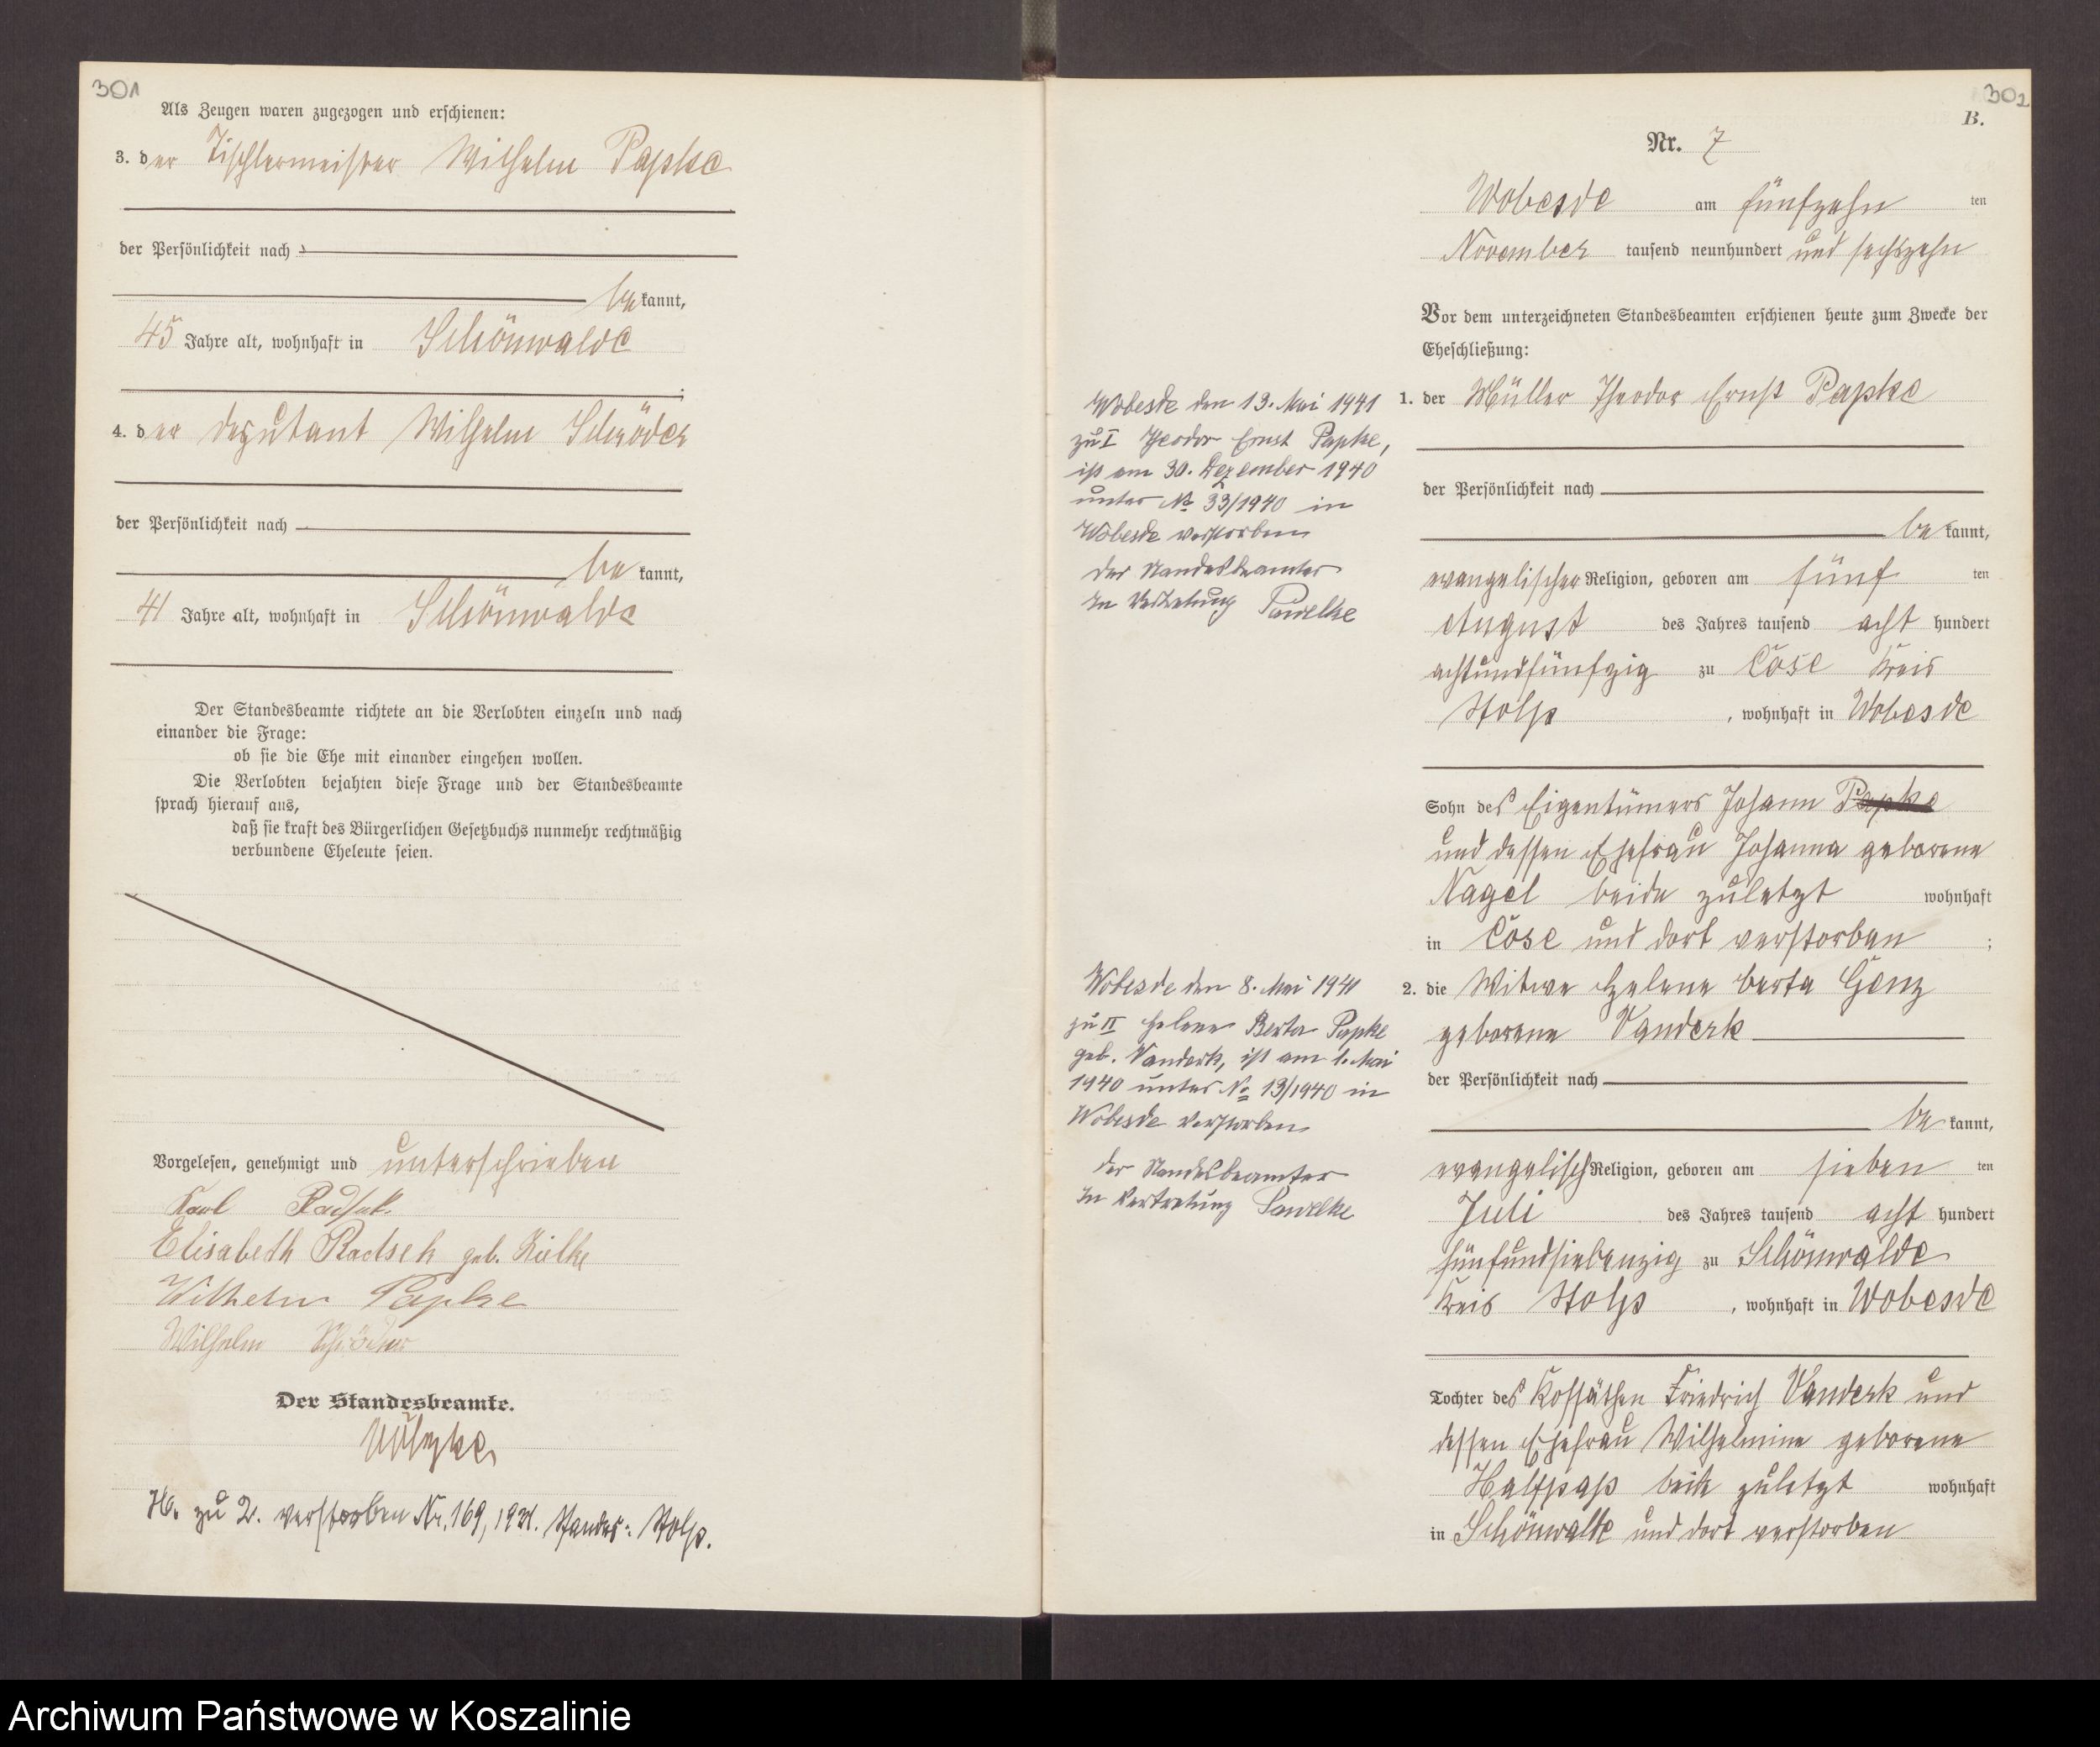 301
Als Zeugen waren zugezogen und erschienen:
3. der Tischlermeister Wilhelm Papke
der Persönlichkeit nach
bekannt,
45 Jahre alt, wohnhaft in Schönwalde
4. der Deputant Wilhelm Schröder
der Persönlichkeit nach
bekannt,
41 Jahre alt, wohnhaft in Schönwalde
Der Standesbeamte richtete an die Verlobten einzeln und nach
einander die Frage:
ob sie die Ehe mit einander eingehen wollen.
Die Verlobten bejahten diese Frage und der Standesbeamte
sprach hierauf aus,
daß sie kraft des Bürgerlichen Gesetzbuchs nunmehr rechtmäßig
verbundene Eheleute seien.
Vorgelesen, genehmigt und unterschrieben
Karl Radsek
Elisabeth Radsek geb.
Wilhelm Papke
Wilhelm Schröder
Der Standesbeamte.
H. zu 2. verstorben Nr. 169, Standes: Stolp.
302
B.
Nr. 7
Wobesde am fünfzehn ten
November tausend neunhundert und sechszehn
Vor dem unterzeichneten Standesbeamten erschienen heute zum Zwecke der
Eheschließung:
1. der Müller Theodor Ernst Papke
der Persönlichkeit nach
bekannt,
evangelischer Religion, geboren am fünf ten
August des Jahres tausend acht hundert
achtundfünfzig zu Cose Kreis
Stolp, wohnhaft in Wobesde
Sohn des Eigentümers Johann Papke
und dessen Ehefrau Johanna geborene
Nagel beide zuletzt wohnhaft
in Cose und dort verstorben;
2. die Witwe Helene Berta Genz
geborene Vanderk
der Persönlichkeit nach
bekannt,
evangelisch Religion, geboren am sieben ten
Juli des Jahres tausend acht hundert
fünfundsiebenzig zu Schönwalde
Kreis Stolp, wohnhaft in Wobesde
Tochter des Kossäthen Friedrich Vanderk und
dessen Ehefrau Wilhelmine geborene
Halfpap beide zuletzt wohnhaft
in Schönwalde und dort verstorben
Wobesde den 13. Mai 1941
zu I Theodor Ernst Papke,
ist am 30. Dezember 1940
unter No 33/1940 in
Wobesde verstorben
Der Standesbeamter
In Vertretung Pawelke
Wobesde den 8. Mai 1941
zu II Helene Berta Papke
geb. Vanderk, ist am 1. Mai
1940 unter No 13/1940 in
Wobesde verstorben
Der Standesbeamter
In Vertretung Pawelke
Archiwum Państwowe w Koszalinie